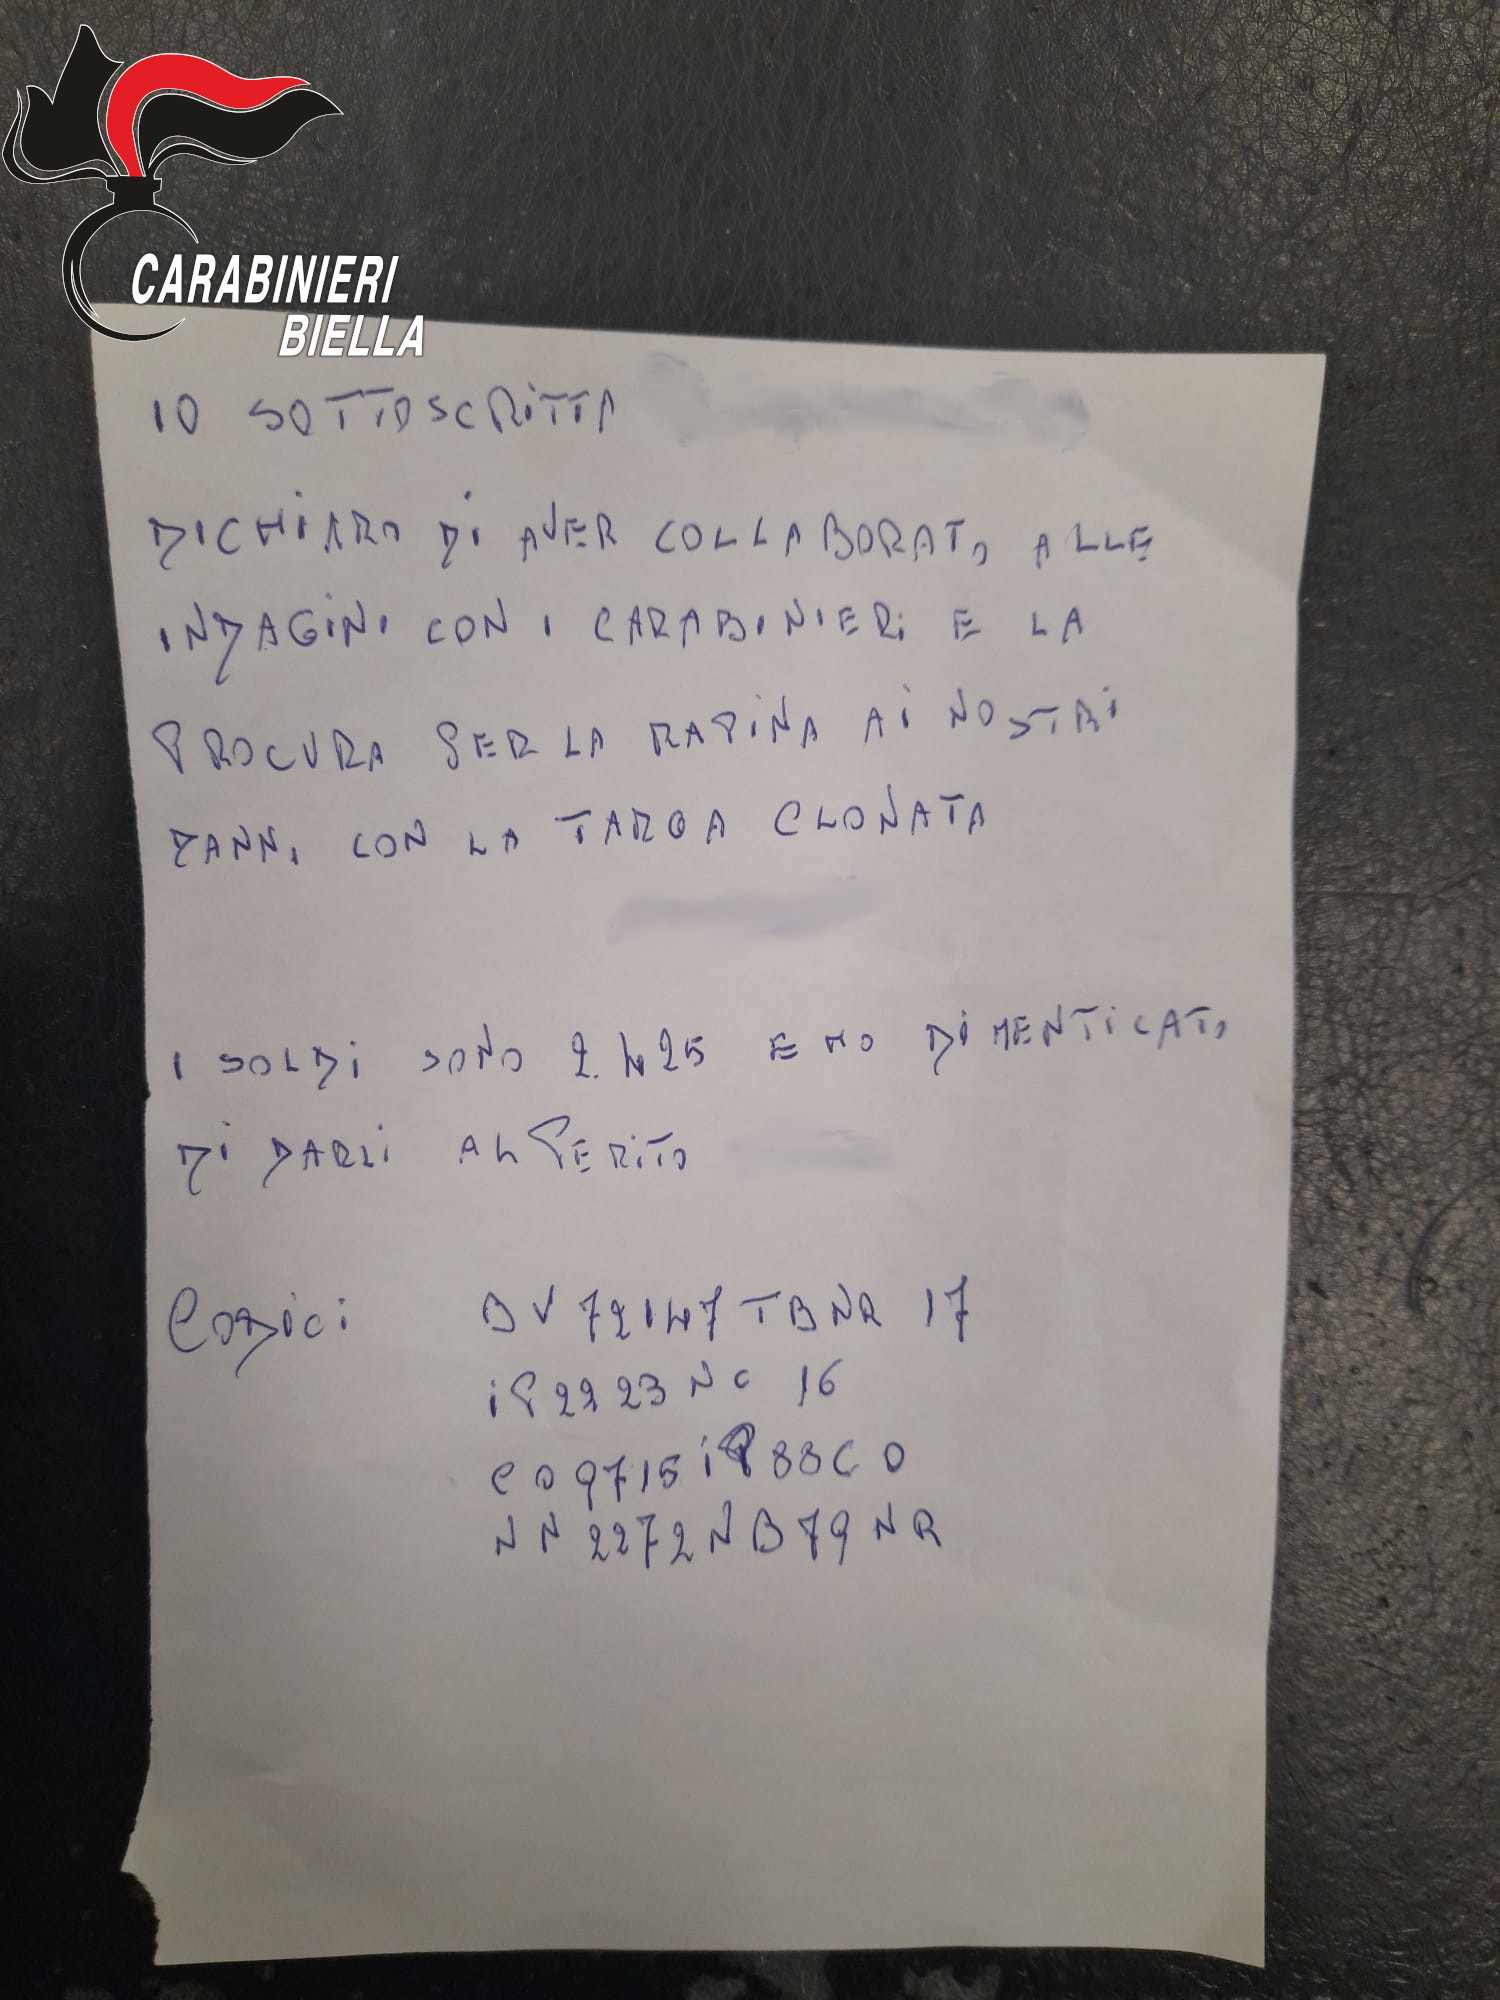 CARABINIERI
BIELLA
IO SOTTOSCRITTA
DICHIARO DI AVER COLLABORATO ALLE
INDAGINI CON I CARABINIERI E LA
PROCURA PER LA RAPINA AI NOSTRI
DANNI CON LA TARGA CLONATA
I SOLDI SONO 2.425 E HO DIMENTICATO
DI DARLI AL PERITO
Codici BV72147TBNR 17
iP2223NC 16
CO9715iP88CO
NN2272NB79NR